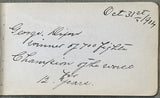 Oct 31st/1904
George Dixon
winner of 700 fights
Champion of the world
for
12 years